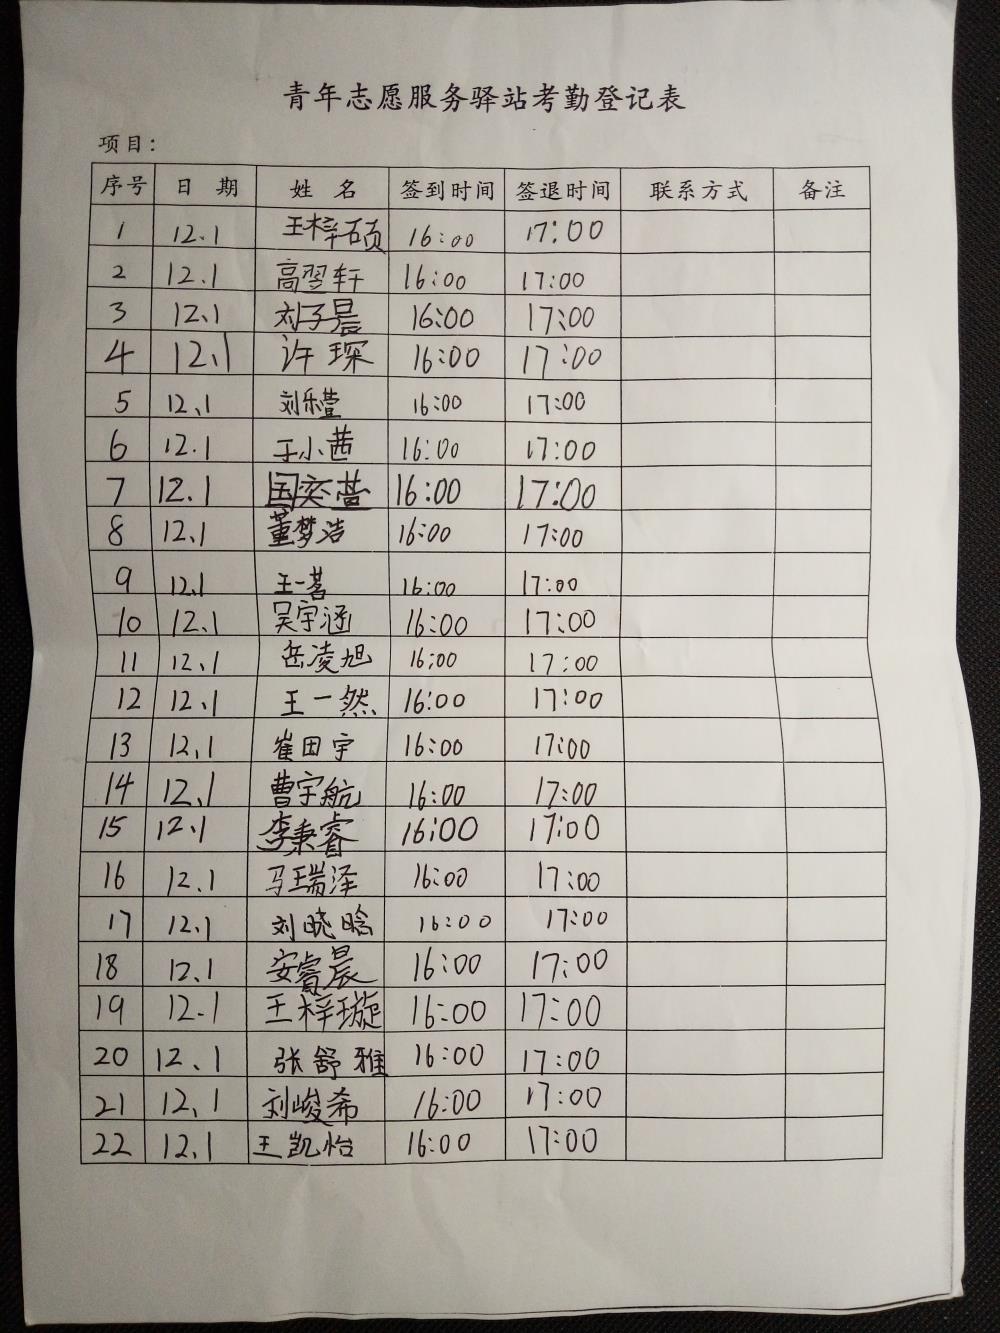 青年志愿服务驿站考勤登记表
项目：
序号 日 期 姓 名 签到时间 签退时间 联系方式 备注
1 12.1 王梓硕 16:00 17:00
2 12.1 高翌轩 16:00 17:00
3 12.1 刘子晨 16:00 17:00
4 12.1 许琛 16:00 17:00
5 12、1 刘乐萱 16:00 17:00
6 12.1 于小茜 16:00 17:00
7 12.1 国奕萱 16:00 17:00
8 12.1 董梦浩 16:00 17:00
9 12.1 王一茗 16:00 17:00
10 12.1 吴宇涵 16:00 17:00
11 12、1 岳凌旭 16:00 17:00
12 12、1 王一然 16:00 17:00
13 12.1 崔田宇 16:00 17:00
14 12、1 曹宇航 16:00 17:00
15 12.1 李秉睿 16:00 17:00
16 12.1 马瑞泽 16:00 17:00
17 12.1 刘晓晗 16:00 17:00
18 12.1 安睿晨 16:00 17:00
19 12.1 王梓璇 16:00 17:00
20 12、1 张舒雅 16:00 17:00
21 12、1 刘峻希 16:00 17:00
22 12、1 王凯怡 16:00 17:00